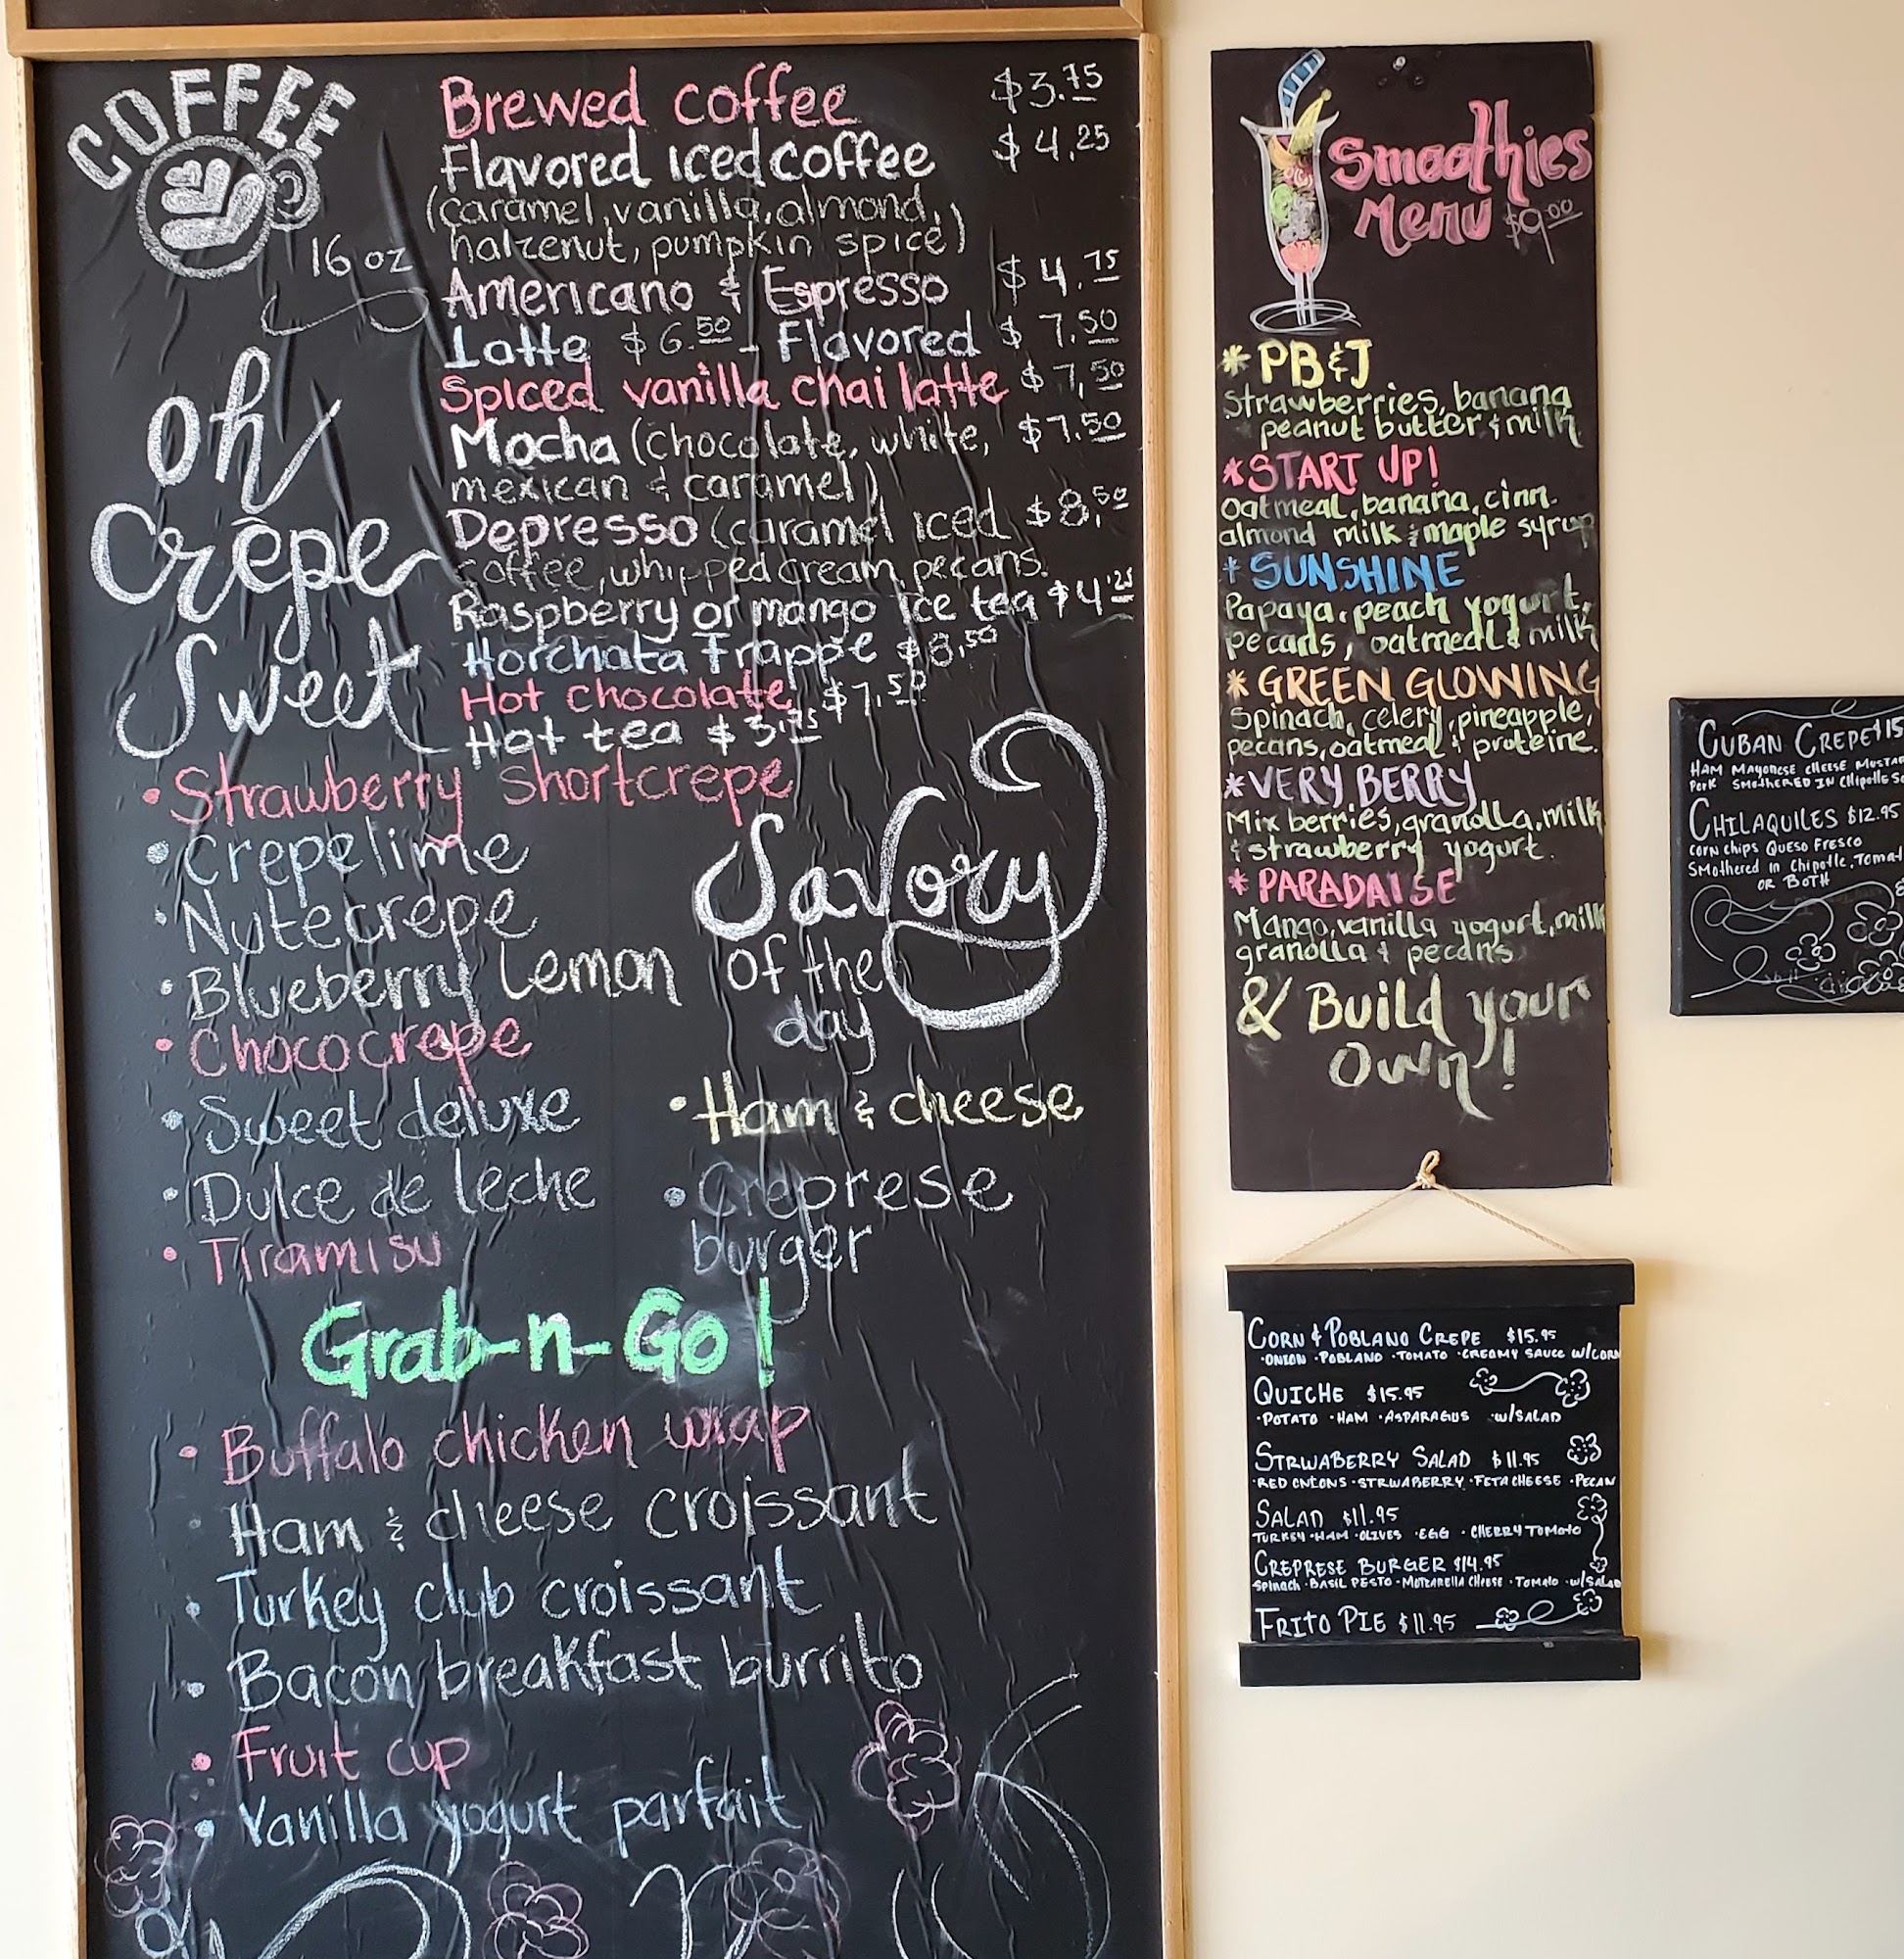 COFFEE
16 oz
Brewed coffee $3.75
Flavored iced coffee $4.25
(caramel, vanilla, almond,
halzenut, pumpkin spice)
Americano & Espresso $4.75
Latte $6.50 - Flavored $7.50
Spiced vanilla chai latte $7.50
Mocha (chocolate, white, $7.50
mexican & caramel)
Depresso (caramel iced $8.50
coffee, whipped cream, pecans.
Raspberry or mango Ice tea $4.25
Horchata Frappe $8.50
Hot chocolate $7.50
Hot tea $3.75
Oh
Crêpe
Sweet
• Strawberry Shortcrepe
• Crepelime
• Nutecrepe
• Blueberry Lemon
• Chococrepe
• Sweet deluxe
• Dulce de leche
• Tiramisu
Savory
of the
day
• Ham & cheese
• Creprese
burger
Grab-n-Go!
• Buffalo chicken wrap
• Ham & cheese croissant
• Turkey club croissant
• Bacon breakfast burrito
• Fruit cup
• Vanilla yogurt parfait
Smoothies
Menu $9.00
* PB&J
Strawberries, banana
peanut butter & milk
* START UP!
Oatmeal, banana, cinn.
almond milk & maple syrup
* SUNSHINE
Papaya, peach yogurt,
pecans, oatmeal & milk
* GREEN GLOWING
Spinach, celery, pineapple,
pecans, oatmeal & proteine.
* VERY BERRY
Mix berries, granolla, milk
& strawberry yogurt.
* PARADAISE
Mango, vanilla yogurt, milk
granolla & pecans
& Build your
Own!
CORN & POBLANO CREPE $15.95
·ONION ·POBLANO ·TOMATO ·CREAMY SAUCE W/CORN
QUICHE $15.95
·POTATO ·HAM ·ASPARAGUS ·W/SALAD
STRWABERRY SALAD $11.95
·RED ONIONS ·STRWABERRY ·FETA CHEESE ·PECAN
SALAD $11.95
TURKEY ·HAM ·OLIVES ·EGG ·CHERRY TOMATO
CREPRESE BURGER $14.95
SPINACH ·BASIL PESTO ·MOTZARELLA CHEESE ·TOMATO ·W/SALAD
FRITO PIE $11.95
CUBAN CREPE $15
HAM MAYONESE CHEESE MUSTAR
PORK SMOTHERED IN CHIPOTLE
CHILAQUILES $12.95
CORN CHIPS QUESO FRESCO
SMOTHERED IN CHIPOTLE, TOMAT
OR BOTH